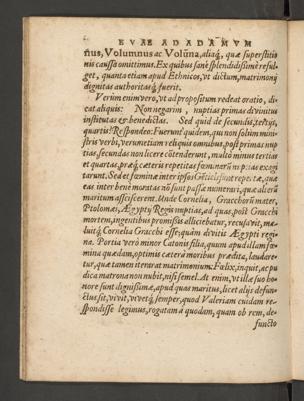 EVAE AD ADAMVM
nus, Volumnus ac Volūna, aliaq́, quæ superstitio
nis caussa omittimus. Ex quibus sanè splendidissimè reful
get, quanta etiam apud Ethnicos, vt dictum, matrimonij
dignitas authoritasq́ fuerit.
Verùm enimvero, vt ad propositum redeat oratio, di-
cat aliquis: Non negarim, nuptias primas divinitus
institutas & benedictas. Sed quid de secundis, tertijs,
quartis? Respondeo: Fuerunt quidem, qui non solùm mini-
stris verbi, verumetiam reliquis omnibus, post primas nup
tias, secundas non licere cōtenderunt, multo minus tertias
et quartas, præq́; cæteris repetitas fœminarū nuptias exagi
tarunt. Sed et fœminæ inter ipsos repetitæ, quæ
eas inter benè moratas nō sunt passæ numerari, quæ alterū
maritum asciscerent. Unde Cornelia, Gracchorū mater,
Ptolomæi, Ægypty Regis nuptias, ad quas, post Gracchi
mortem, ingentibus promissis alliciebatur, recusavit, ma-
luitq́ Cornelia Gracchi esse: quàm divitis Ægypti regi
na. Portia verò minor Catonis filia, quum apud illam fœ-
mina quædam, optimis cæterà moribus prædita, laudare-
tur, quæ tamen iterarat matrimonium: Fœlix, inquit, ac pu
dica matrona non nubit, nisi semel. At enim, vt illæ suo ho-
nore sunt dignissimæ, apud quas maritus, licet alijs defun-
ctus sit, vivit, vivetq́ semper, quod Valeriam cuidam re-
spondisse legimus, rogatam à quodam, quam ob rem, de-
functo